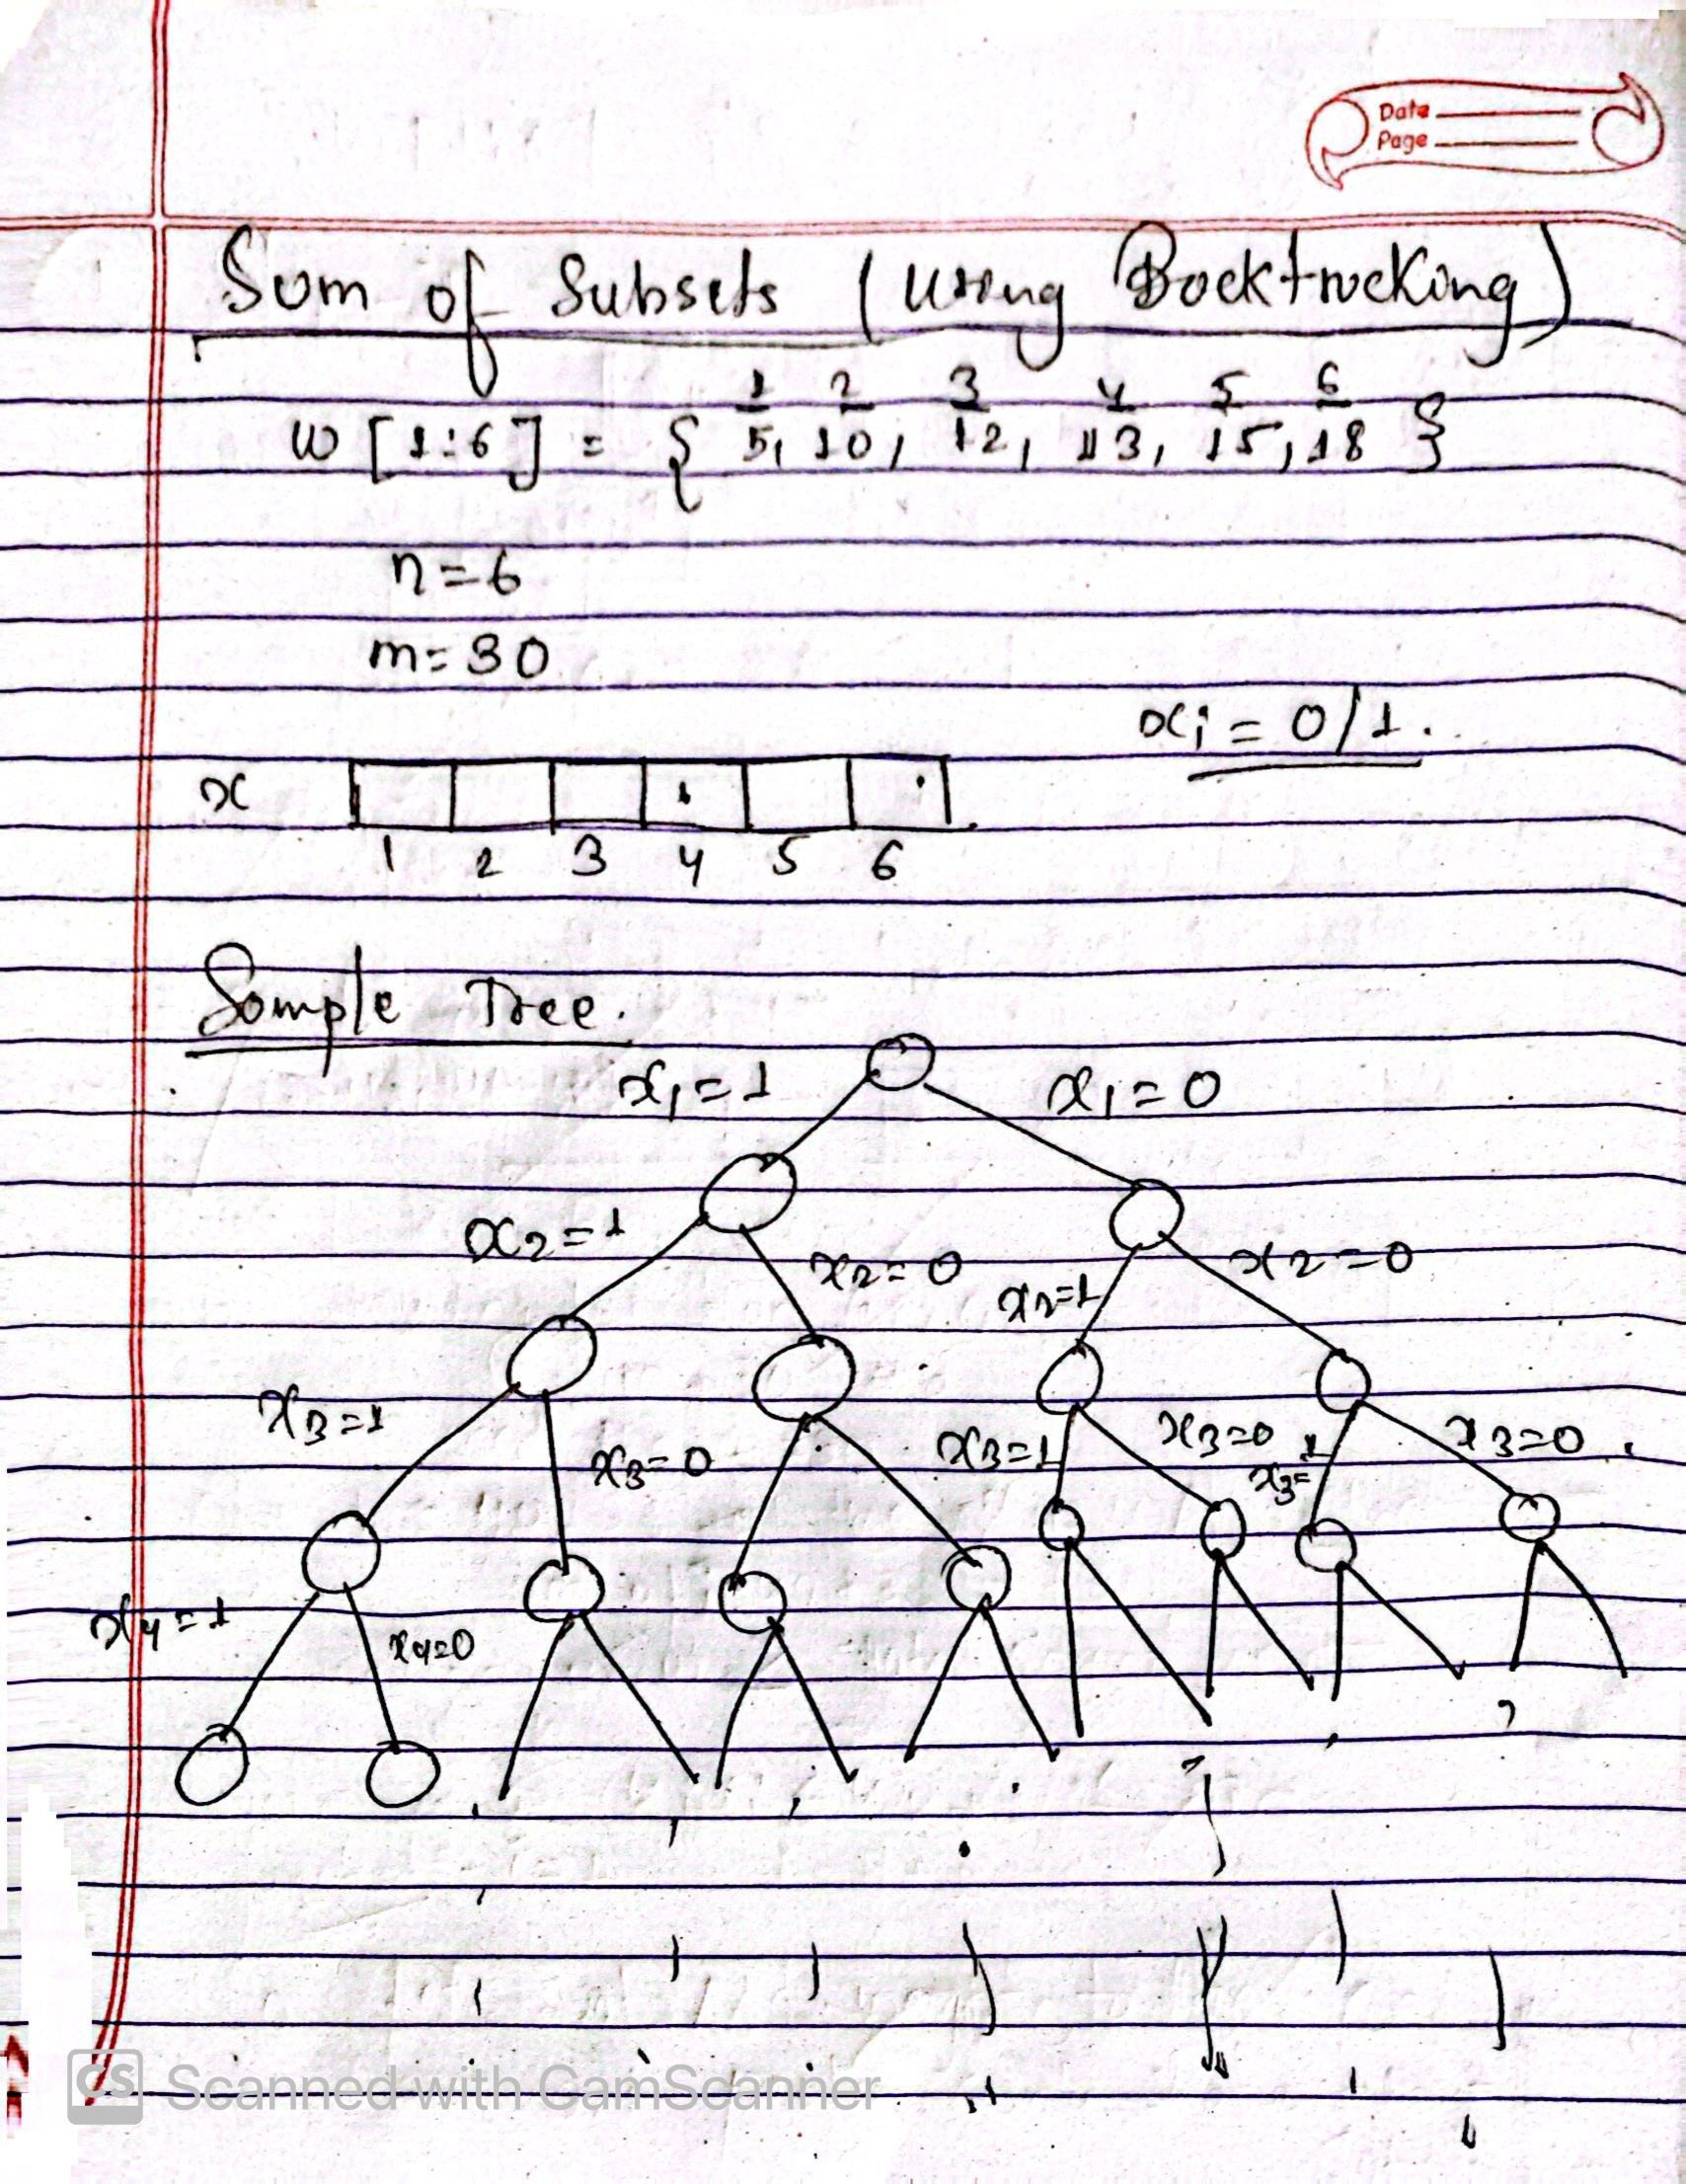 Date
Page
Sum of Subsets (Using Backtracking)
1 2 3 4 5 6
w [1:6] = { 5, 10, 12, 13, 15, 18 }
n=6
m=30
xi = 0/1.
x
1 2 3 4 5 6
Sample Tree.
x1=1 x1=0
x2=1 x2=0 x2=1 x2=0
x3=1 x3=0 x3=1 x3=0 x3=1 x3=0
x4=1 x4=0
CS Scanned with CamScanner